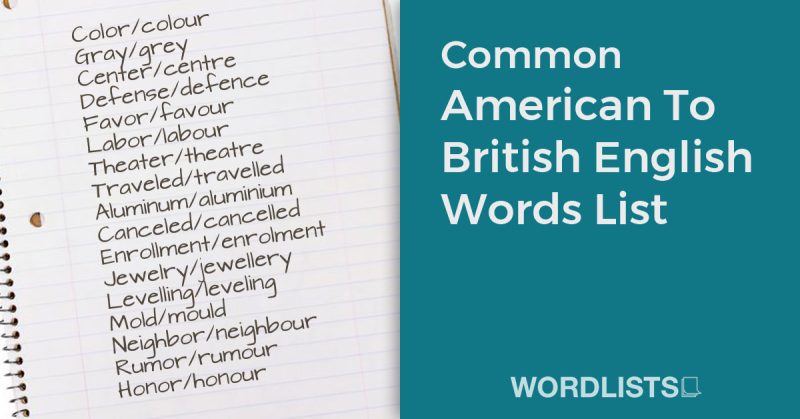 Color/colour
Gray/grey
Center/centre
Defense/defence
Favor/favour
Labor/labour
Theater/theatre
Traveled/travelled
Aluminum/aluminium
Canceled/cancelled
Enrollment/enrolment
Jewelry/jewellery
Levelling/leveling
Mold/mould
Neighbor/neighbour
Rumor/rumour
Honor/honour
Common
American To
British English
Words List
WORDLISTS